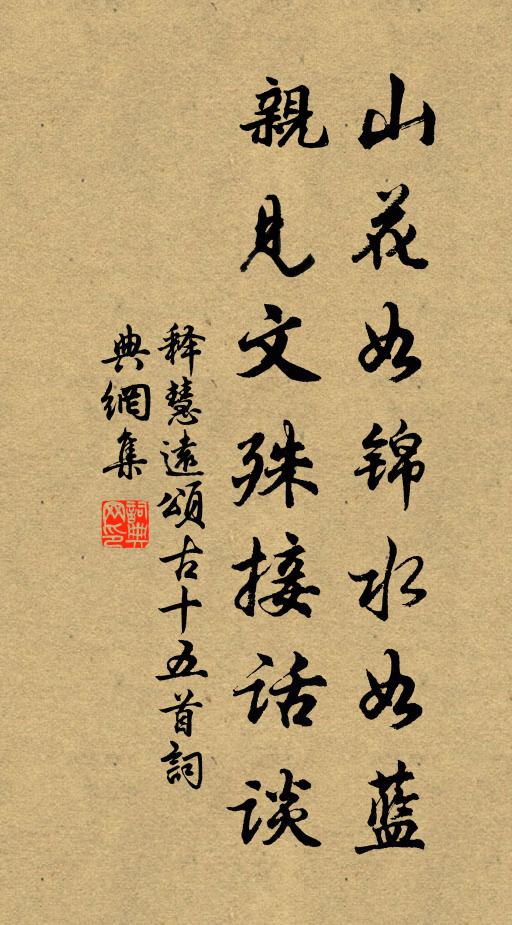 山花如锦水如蓝
親見文殊接话谈
释慧遠頌古十五首詞
典網集
詞典網印